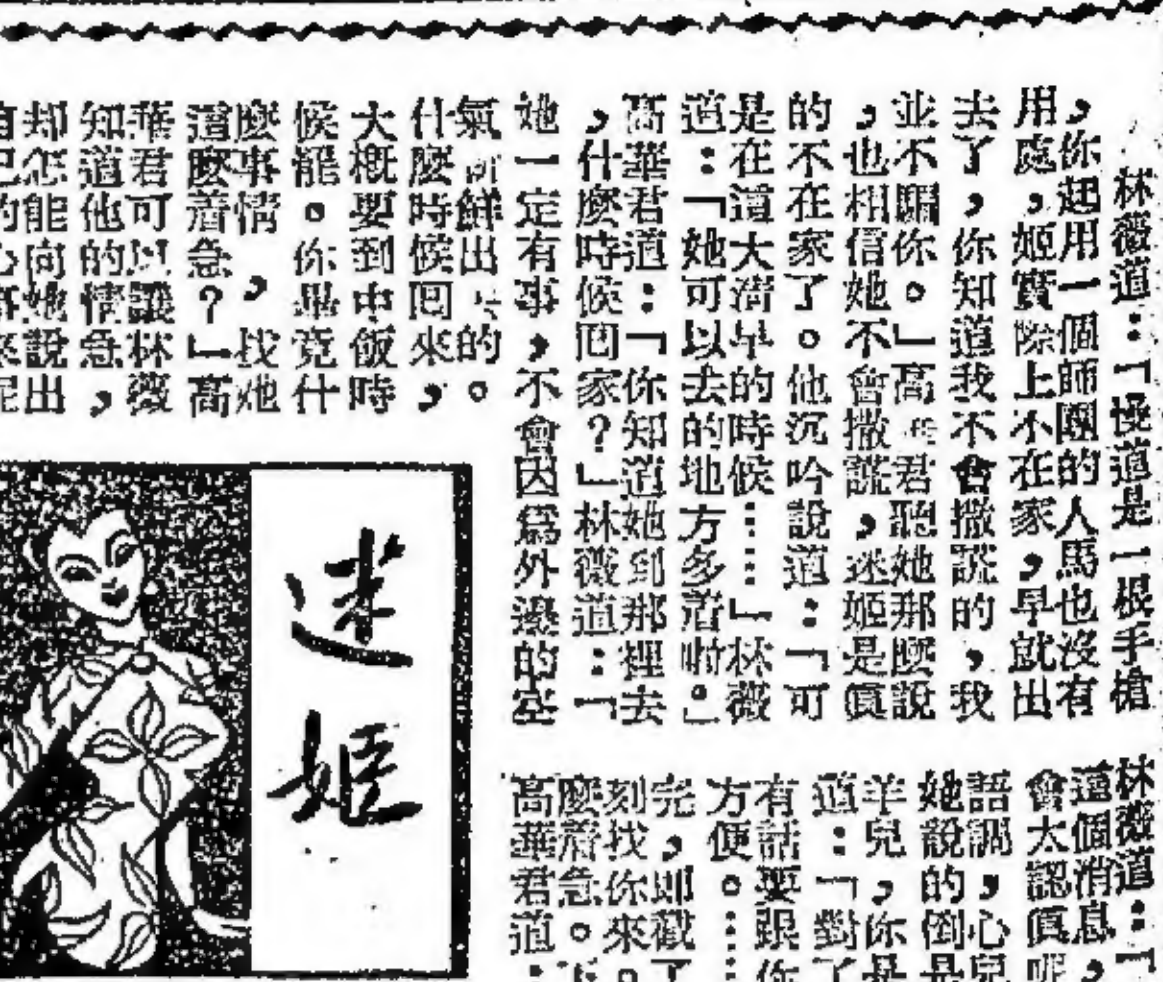 林薇道：「慢道是一根手槍
，你起用一個師團的人馬也沒有
用處，姬實際上不在家，早就出
去了，你知道我不會撒謊的，我
並不騙你。」高華君聽她那麼說
，也相信她不會撒謊，迷姬是真
的不在家了。他沉吟說道：「可
是在這大清早的時候……」林薇
道：「她可以去的地方多着啲。」
高華君道：「你知道她到那裡去
，什麼時候囘家？」林薇道：「
她一定有事，不會因爲外邊的空
氣新鮮出去的。
什麼時候囘來，
大概要到中飯時
候罷。你畢竟什
麼事情，找她
這麼着急？」高
華君可以讓林薇
知道他的情急，
却怎能向她說出
自己的心事來呢
迷姬
林薇道：「
這個消息，
會太認真呢
語調，心兒
她說的倒是
羊兒，你是
道：「對了
有話要跟你
方便。…
完，即戳了
刻找你來。
麼着急。
高華君道：